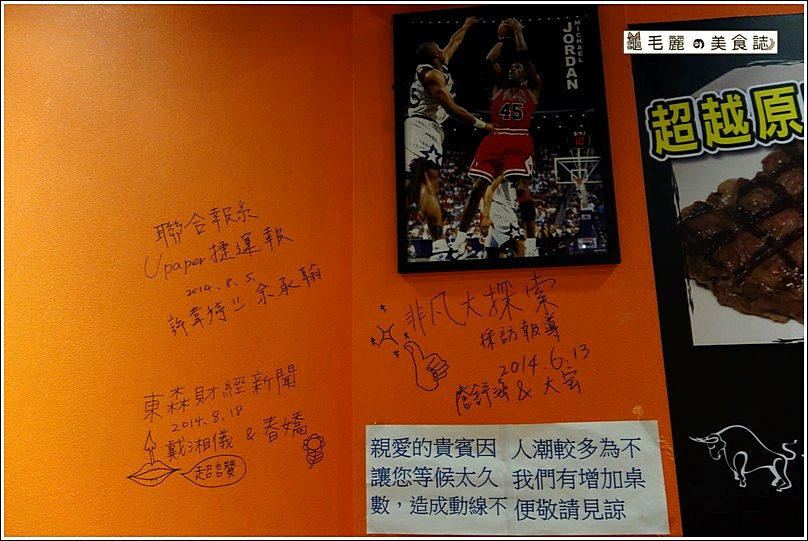 龜毛麗の美食誌
MICHAEL
JORDAN
45
超越原
聯合報系
Upaper 捷運報
2014.8.5.
東森財經新聞
2014.8.18
戴湘儀 & 春嬌
超讚
非凡大探索
採訪報導
2014.6.13
親愛的貴賓因 人潮較多為不
讓您等候太久 我們有增加桌
數，造成動線不 便敬請見諒